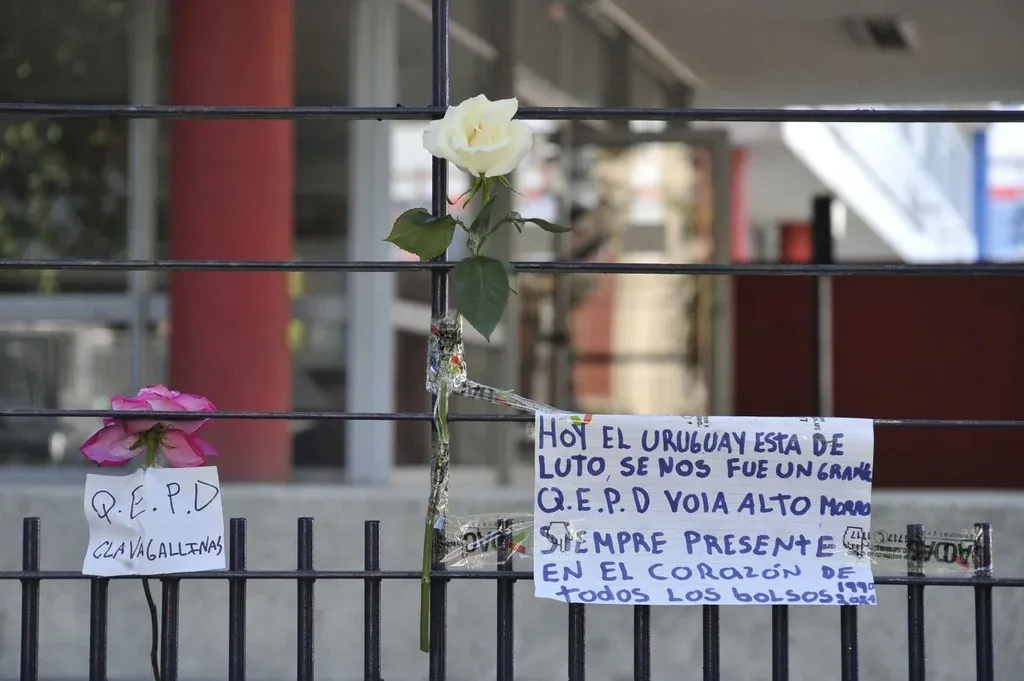 Q.E.P.D
CLAVAGALLINAS
HOY EL URUGUAY ESTA DE
LUTO, SE NOS FUE UN GRANDE
Q.E.P.D VOLA ALTO MORRO
SIEMPRE PRESENTE
EN EL CORAZÓN DE
todos LOS BOLSOS